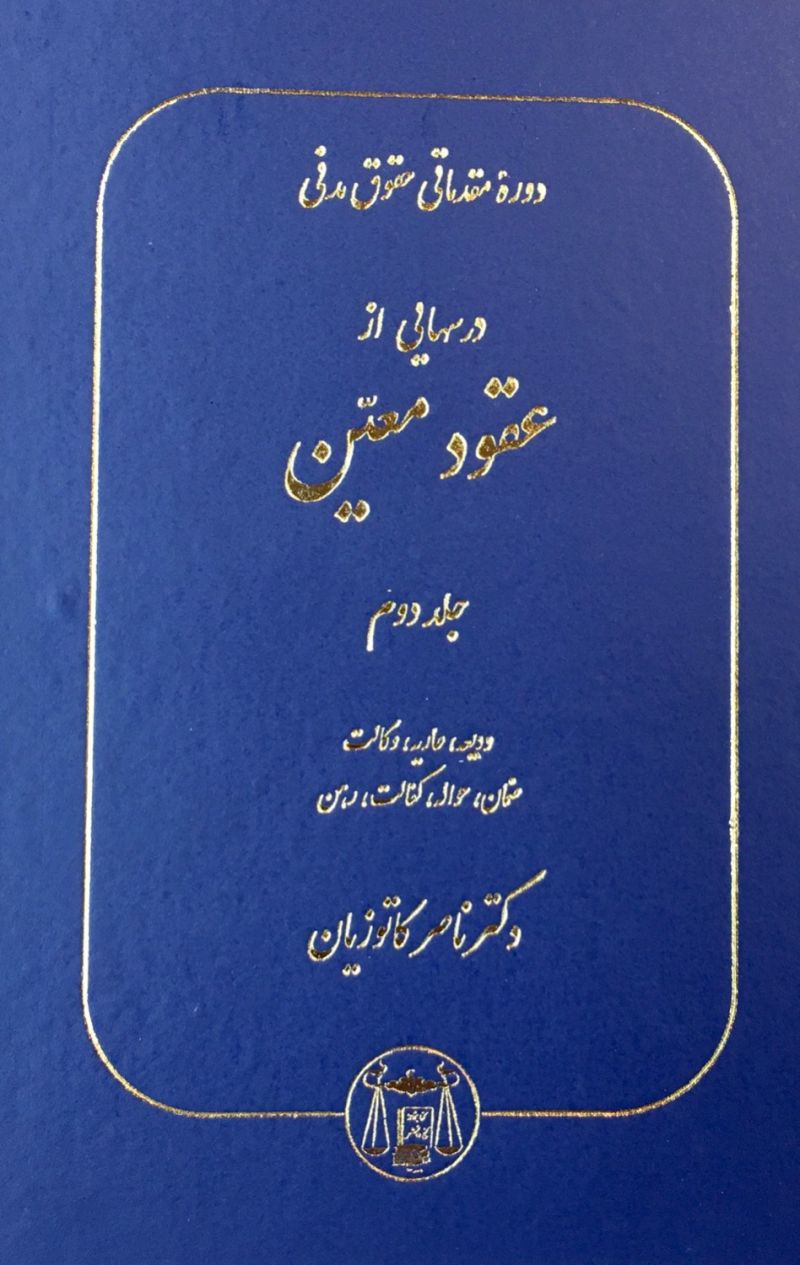 دورهٔ مقدماتی حقوق مدنی
درسهایی از
عقود معیّن
جلد دوم
ودیعه، عاریه، وکالت
ضمان، حواله، کفالت، رهن
دکتر ناصر کاتوزیان